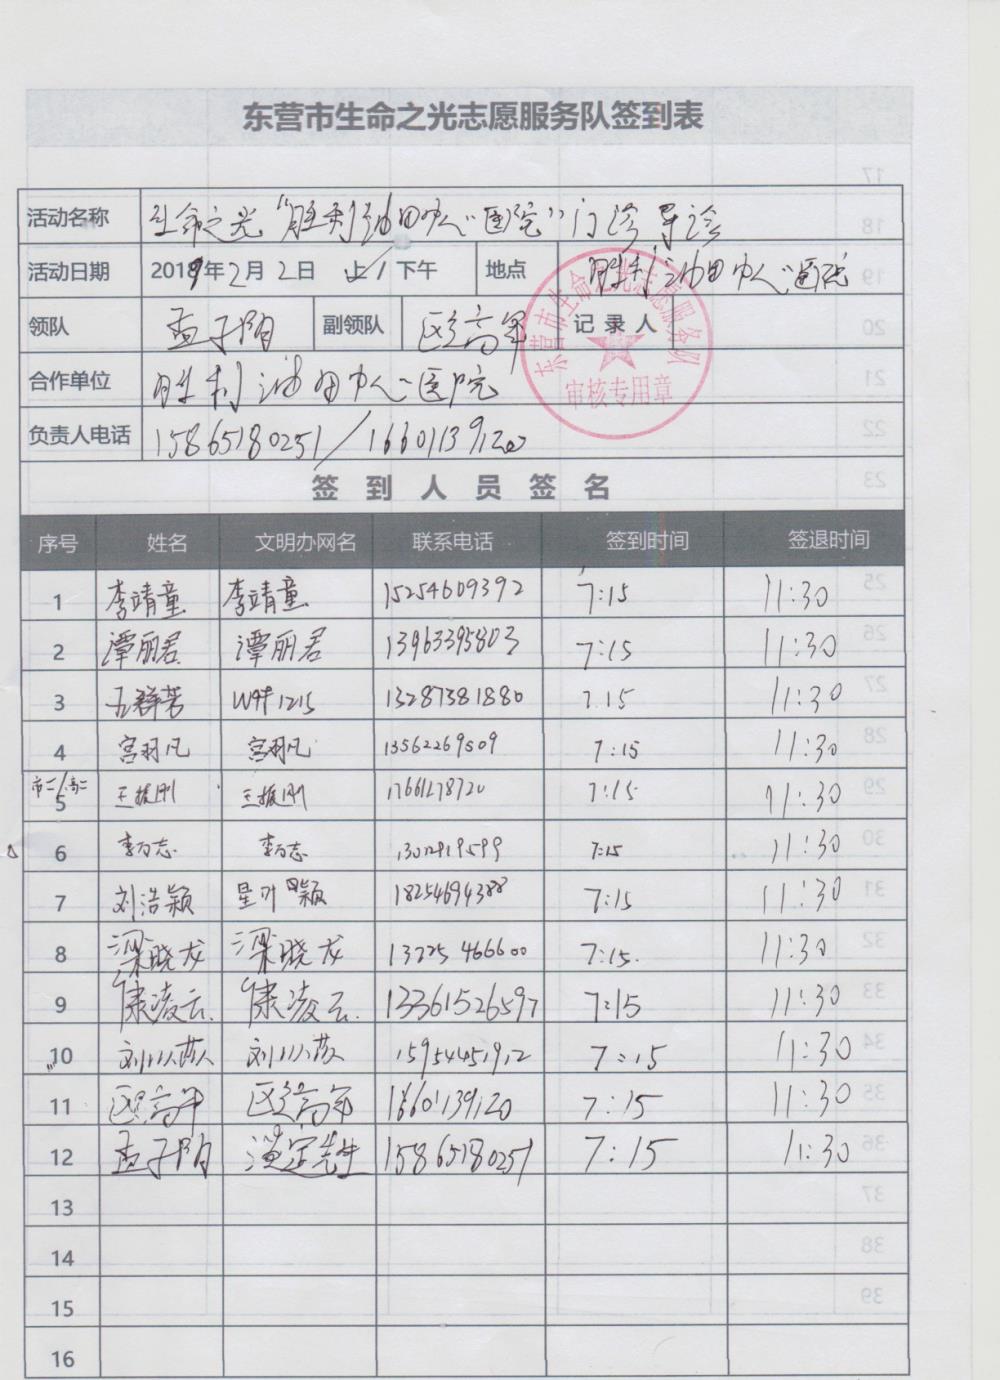 东营市生命之光志愿服务队签到表
活动名称 生命之光“胜利油田中心医院”门诊导诊
活动日期 2019年2月2日 上/下午 地点 胜利油田中心医院
领队 孟子阳 副领队 区高军 记录人
合作单位 胜利油田中心医院
负责人电话 15865180251/16601139120
东营市生命之光志愿服务队
审核专用章
签到人员签名
序号 姓名 文明办网名 联系电话 签到时间 签退时间
1 李靖童 李靖童 15254609392 7:15 11:30
2 谭丽君 谭丽君 13963395803 7:15 11:30
3 群芳 1215 13287381880 7.15 11:30
4 宫羽凡 宫羽凡 13562269509 7:15 11:30
5 王振刚 王振刚 17661278720 7:15 11:30
6 李万志 李万志 7:15 11:30
7 刘浩颖 18254694388 7:15 11:30
8 梁晓龙 梁晓龙 13225466600 7:15. 11:30
9 康凌云 康凌云 13361526597 7:15 11:30
10 刘 刘 15954451912 7:15 11:30
11 高军 高军 16601139120 7:15 11:30
12 孟子阳 先生 15865180251 7:15 11:30
13
14
15
16
17
18
19
20
21
22
23
25
26
27
28
29
30
31
32
33
34
35
36
37
38
39